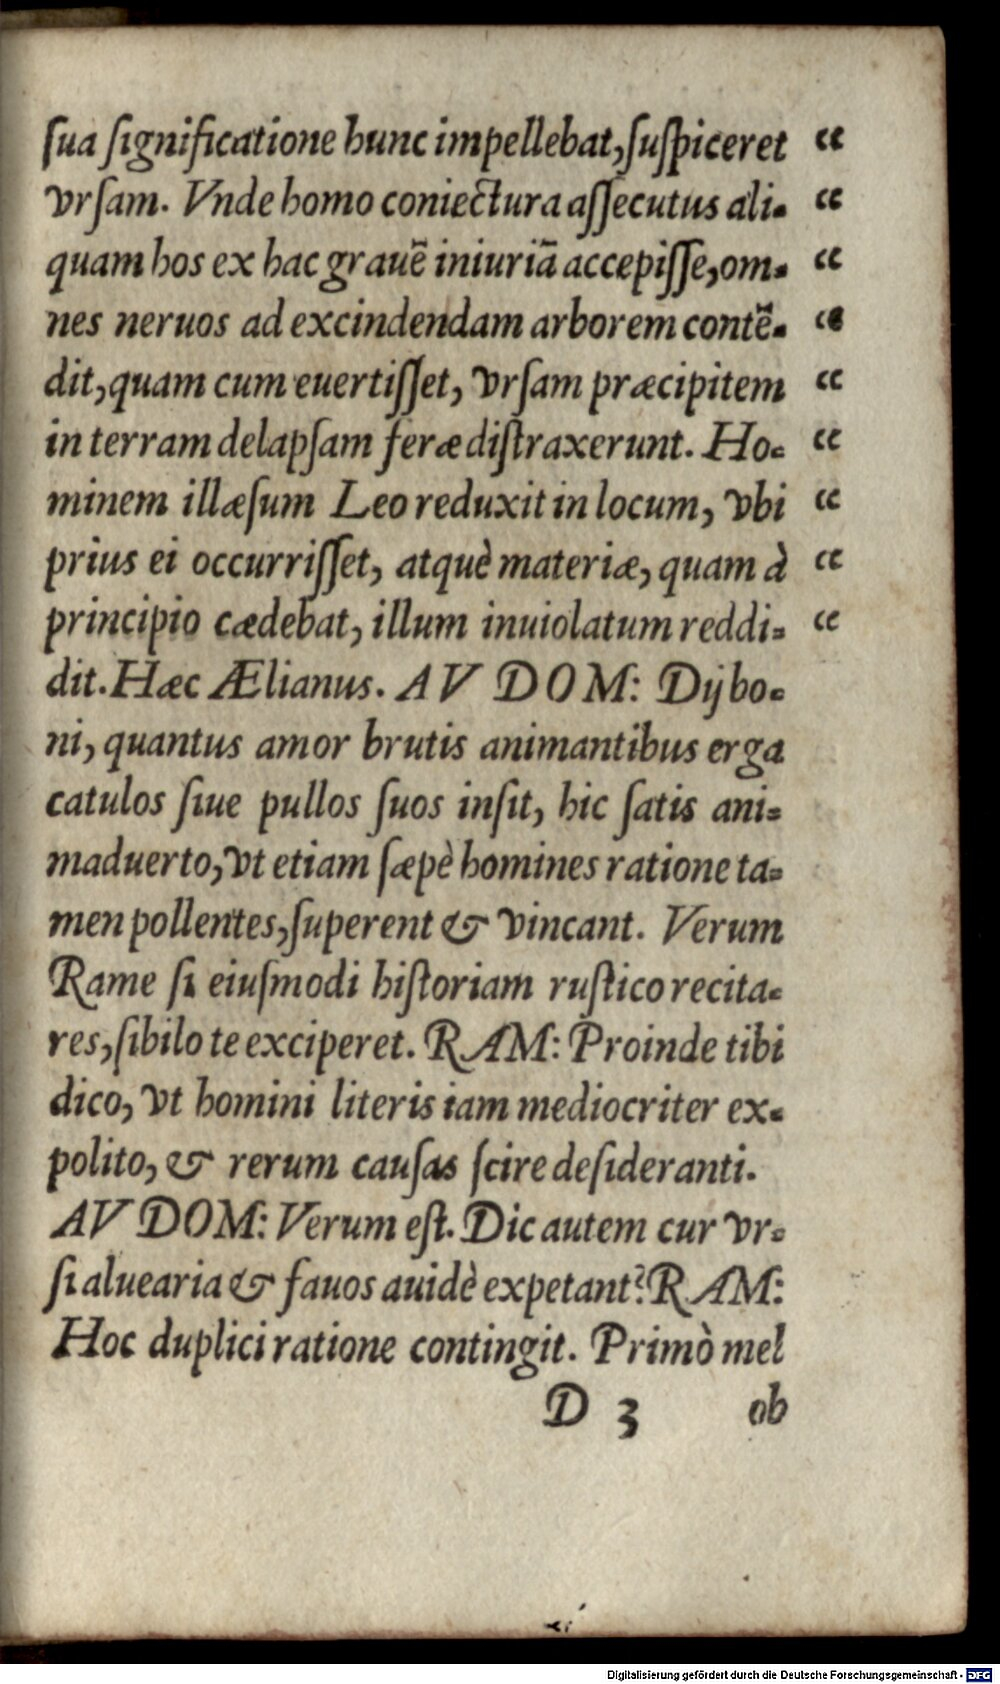 ſua ſignificatione hunc impellebat, ſuſpiceret “
vrſam. Vnde homo coniectura aſſecutus ali- “
quam hos ex hac grauẽ iniuriã accepiſſe, om- “
nes neruos ad excindendam arborem contẽ- “
dit, quam cum euertiſſet, vrſam præcipitem “
in terram delapſam feræ diſtraxerunt. Ho- “
minem illæſum Leo reduxit in locum, vbi “
prius ei occurriſſet, atquè materiæ, quam à “
principio cædebat, illum inuiolatum reddi- “
dit. Hæc Ælianus. AV DOM: Dij bo-
ni, quantus amor brutis animantibus erga
catulos ſiue pullos ſuos inſit, hic ſatis ani-
maduerto, vt etiam ſæpè homines ratione ta-
men pollentes, ſuperent & vincant. Verum
Rame ſi eiuſmodi hiſtoriam ruſtico recita-
res, ſibilo te exciperet. RAM: Proinde tibi
dico, vt homini literis iam mediocriter ex-
polito, & rerum cauſas ſcire deſideranti.
AV DOM: Verum eſt. Dic autem cur vr-
ſi aluearia & fauos auidè expetant? RAM:
Hoc duplici ratione contingit. Primò mel
D 3 ob
Digitalisierung gefördert durch die Deutsche Forschungsgemeinschaft - DFG